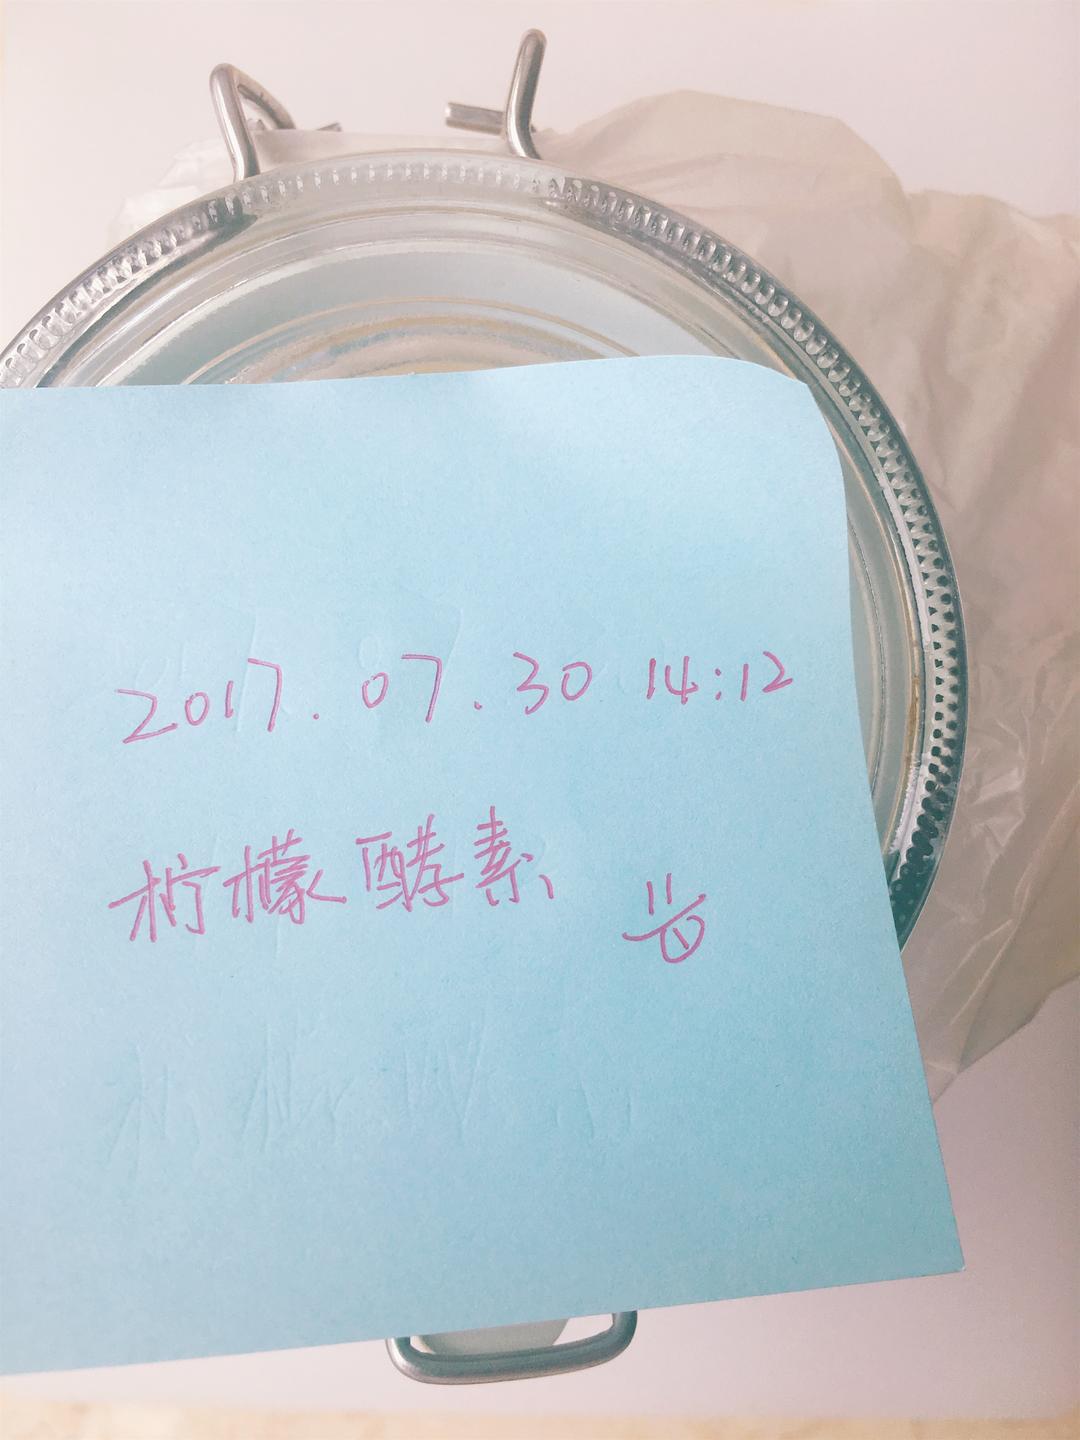 2017.07.30 14:12
柠檬酵素